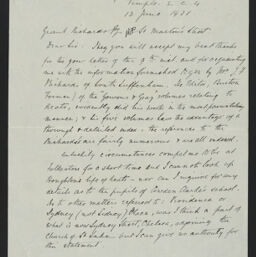 Temple. E.C.4
12 June 1931
Grant Richards Esq St Martin's Street
Dear Sir. I beg you will accept my best thanks
for your letter of the 9th inst and for
me with the information furnished by Mr J
Richards of South Luffenham. The
of the volumes relating to
Keats, evidently did his work in the most painstaking
manner; & his five volumes have the advantage of a
thorough & detailed index. the references to the
Richards's are fairly numerous & are all indexed.
Unluckily circumstances compel me to be at
Folkestone for a short time and I cannot look up
Houghton's life of Keats - nor can I inquire for any
details as to the pupils of Cowden Clarke's school.
As to other matters referred to: Providence or
Sydney (not Sidney) Place, was I think a part of
what is now Sydney Street, Chelsea, adjoining the
Church of St Luke but I can give no authority for
this statement.